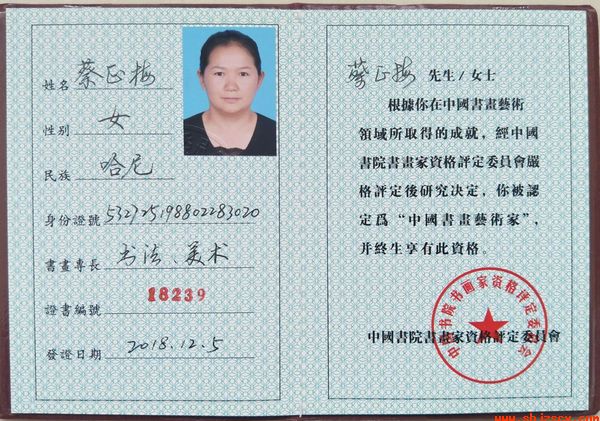 姓名 蔡正梅
性别 女
民族 哈尼
身份證號 532325198802283020
書畫專長 书法、美术
證書編號 18239
發證日期 2018.12.5
蔡正梅 先生/女士
根據你在中國書畫藝術
領域所取得的成就，經中國
書院書畫家資格評定委員會嚴
格評定後研究决定，你被認
定爲“中國書畫藝術家”，
并終生享有此資格。
中國書院書畫家資格評定委員會
中国书院书画家资格评定委员会
www.shjzscx.com